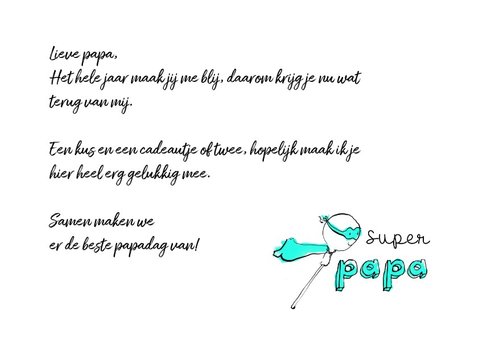 Lieve papa,
Het hele jaar maak jij me blij, daarom krijg je nu wat
terug van mij.
Een kus en een cadeautje of twee, hopelijk maak ik je
hier heel erg gelukkig mee.
Samen maken we
er de beste papadag van!
super
papa